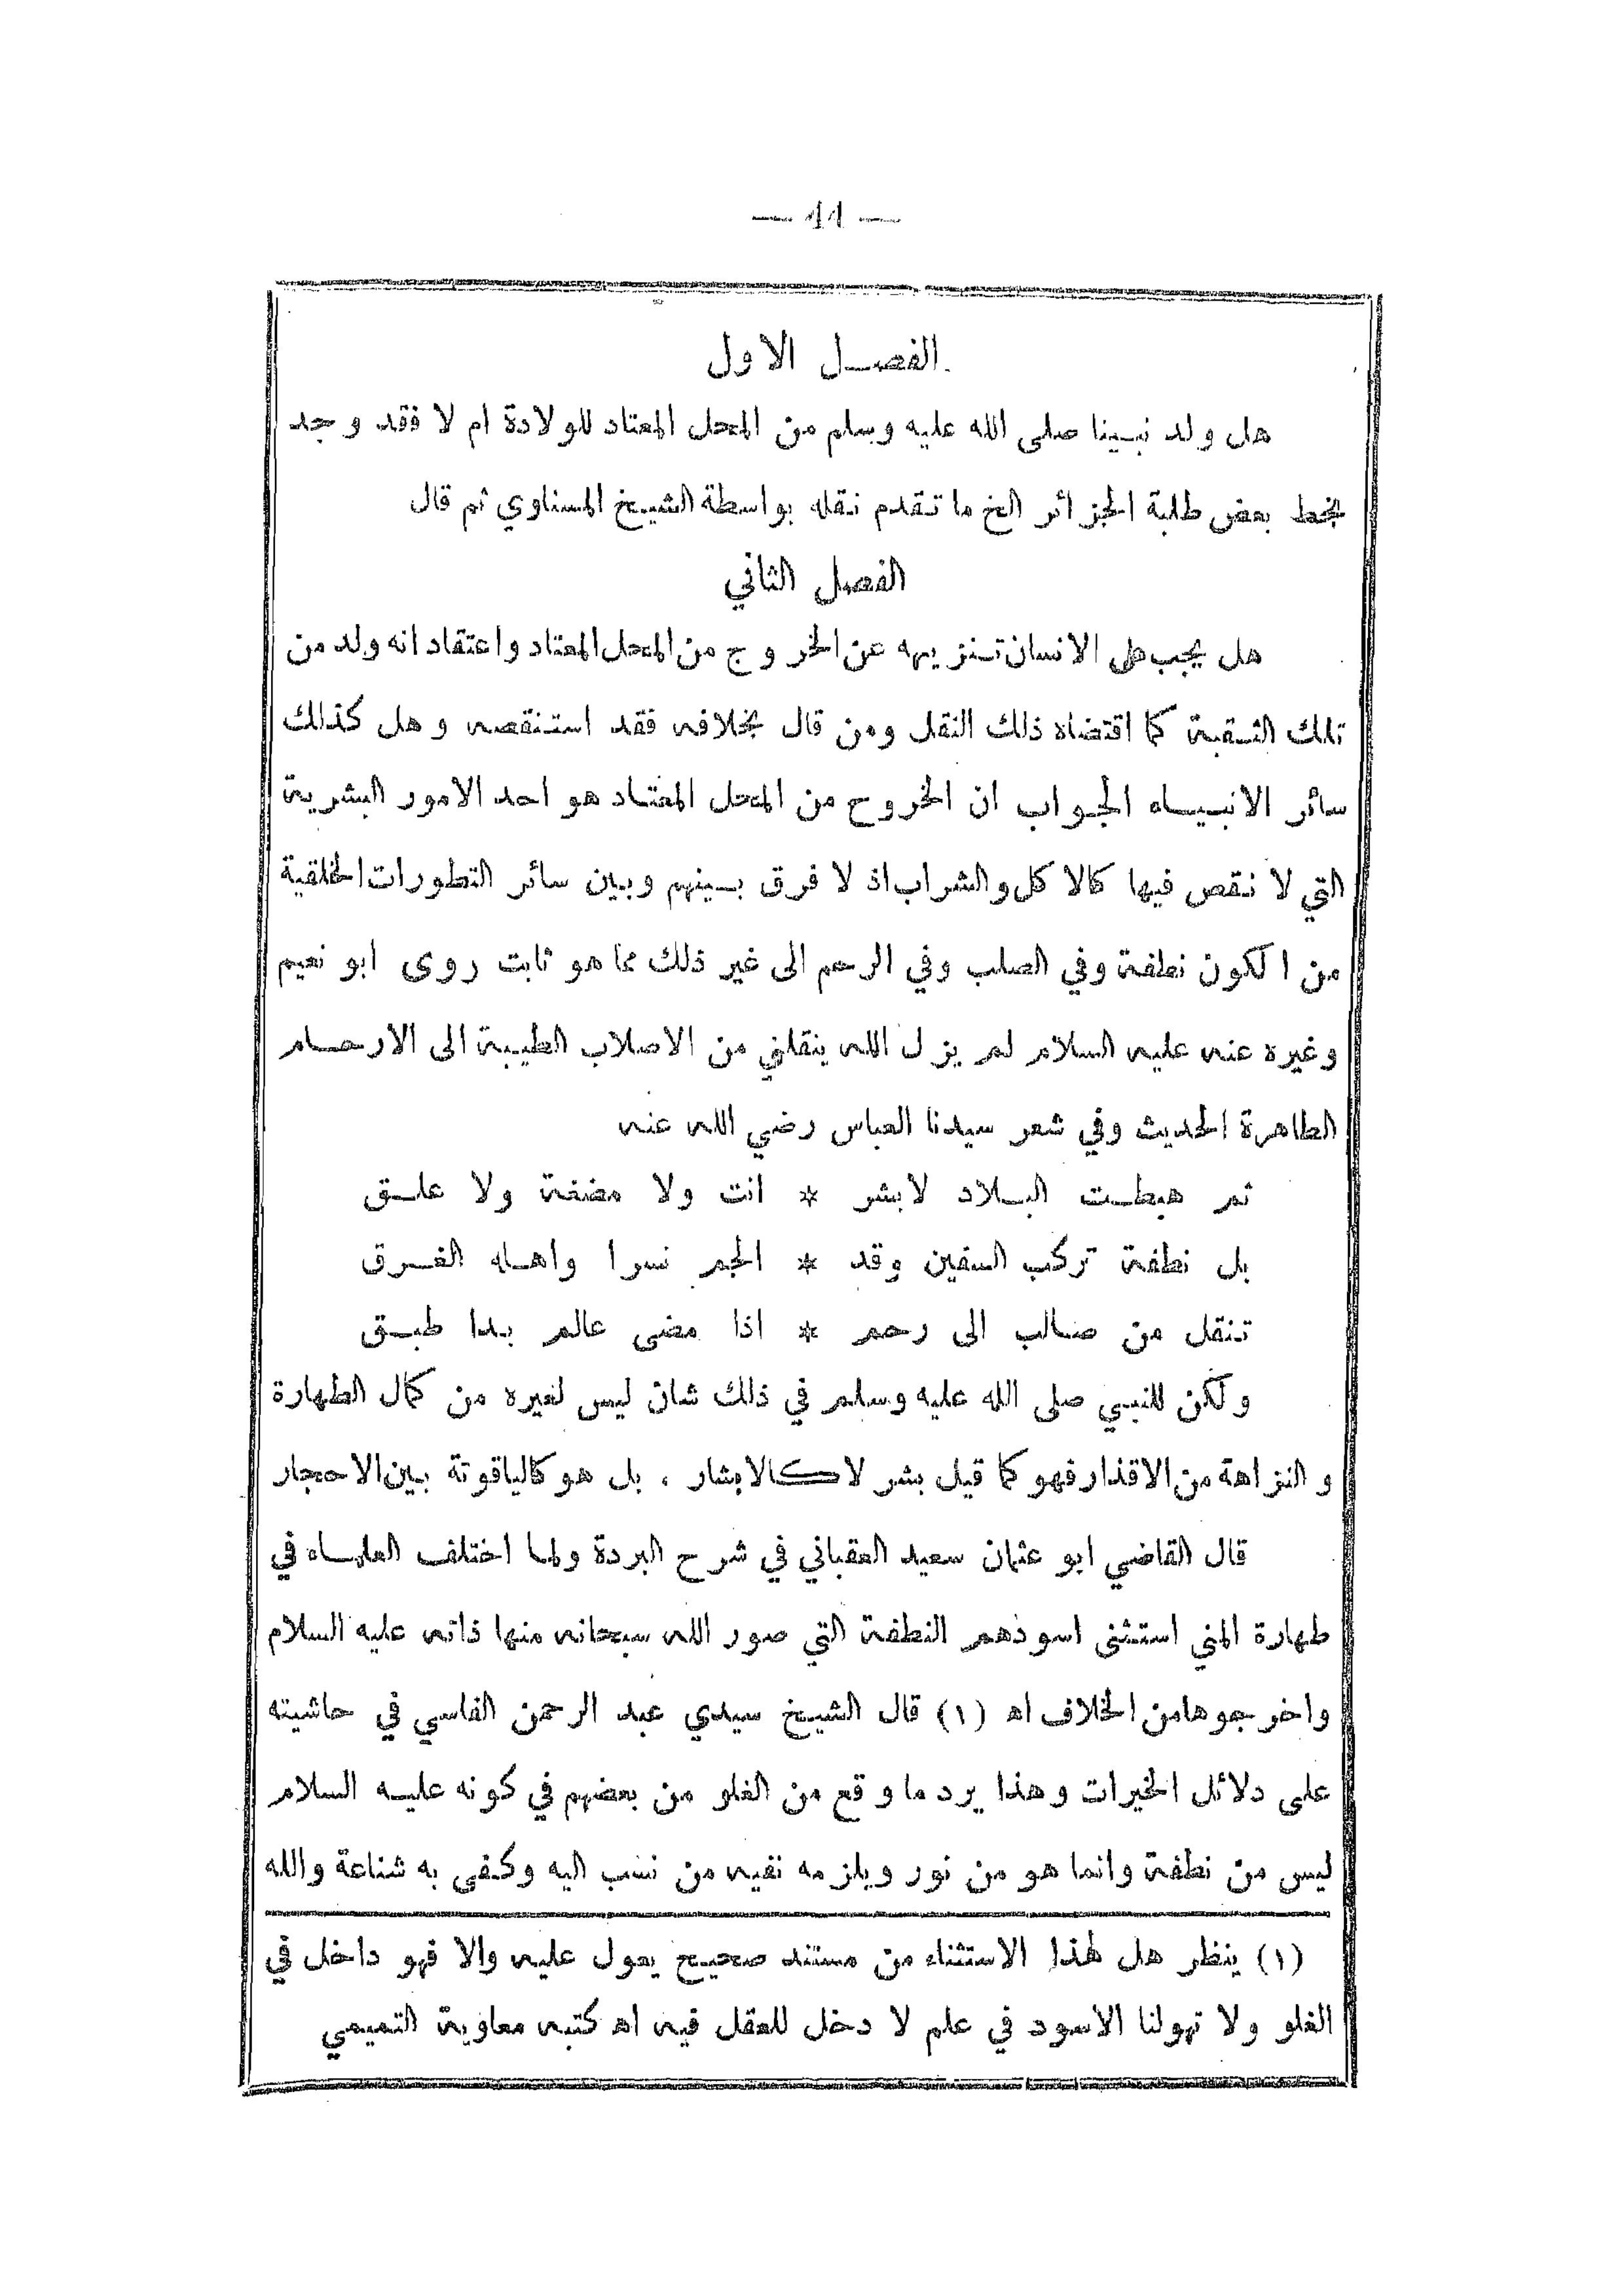 — 44 —
الفصل الاول
هل ولد نبينا صلى الله عليه وسلم من المحل المعتاد للولادة ام لا فقد وجد
بخط بعض طلبة الجزائر الخ ما تقدم نقله بواسطة الشيخ المسناوي ثم قال
الفصل الثاني
هل يجب على الانسان تنزيهه عن الخروج من المحل المعتاد واعتقاد انه ولد من
تلك الثقبة كما اقتضاه ذلك النقل ومن قال بخلافه فقد استنقصه وهل كذلك
سائر الانبياء الجواب ان الخروج من المحل المعتاد هو احد الامور البشرية
التي لا نقص فيها كالاكل والشراب اذ لا فرق بينهم وبين سائر التطورات الخلقية
من الكون نطفة وفي الصلب وفي الرحم الى غير ذلك مما هو ثابت روى ابو نعيم
وغيره عنه عليه السلام لم يزل الله ينقلني من الاصلاب الطيبة الى الارحام
الطاهرة الحديث وفي شعر سيدنا العباس رضي الله عنه
ثم هبطت البلاد لابشر * انت ولا مضغة ولا علق
بل نطفة تركب السفين وقد * الجم نسرا واهله الغرق
تنقل من صالب الى رحم * اذا مضى عالم بدا طبق
ولكن للنبي صلى الله عليه وسلم في ذلك شان ليس لغيره من كمال الطهارة
والنزاهة من الاقذار فهو كما قيل بشر لا كالابشار ، بل هو كالياقوتة بين الاحجار
قال القاضي ابو عثمان سعيد العقباني في شرح البردة ولما اختلف العلماء في
طهارة المني استثنى اسودهم النطفة التي صور الله سبحانه منها ذاته عليه السلام
واخرجوها من الخلاف اهـ (١) قال الشيخ سيدي عبد الرحمن الفاسي في حاشيته
على دلائل الخيرات وهذا يرد ما وقع من الغلو من بعضهم في كونه عليه السلام
ليس من نطفة وانما هو من نور ويلزمه نفيه من نسب اليه وكفى به شناعة والله
(١) ينظر هل لهذا الاستثناء من مستند صحيح يعول عليه والا فهو داخل في
الغلو ولا تهولنا الاسود في علم لا دخل للعقل فيه اهـ كتبه معاوية التميمي